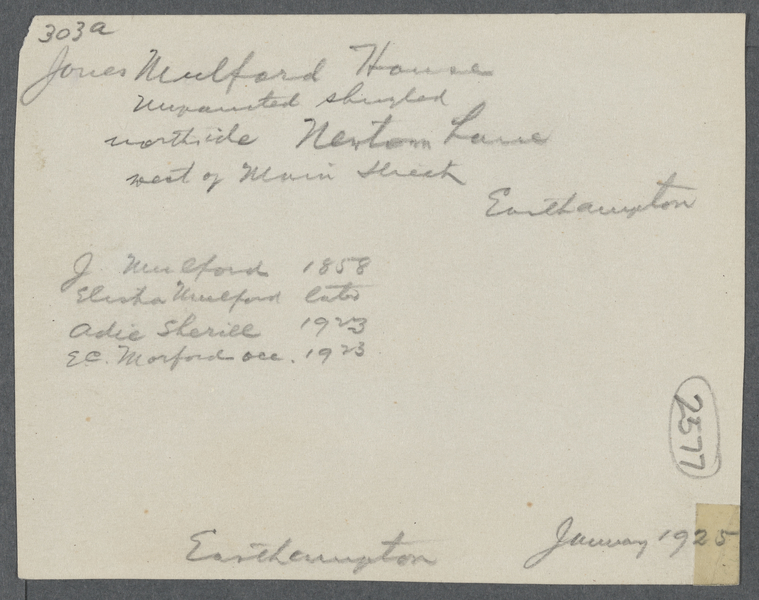 303a
Jones Mulford House
Unpainted shingled
northside Newtown Lane
west of Main Street
Easthampton
J Mulford 1858
Elisha Mulford later
Adie Sherill 1923
E.C. Morford occ. 1923
2577
Easthampton
January 1925